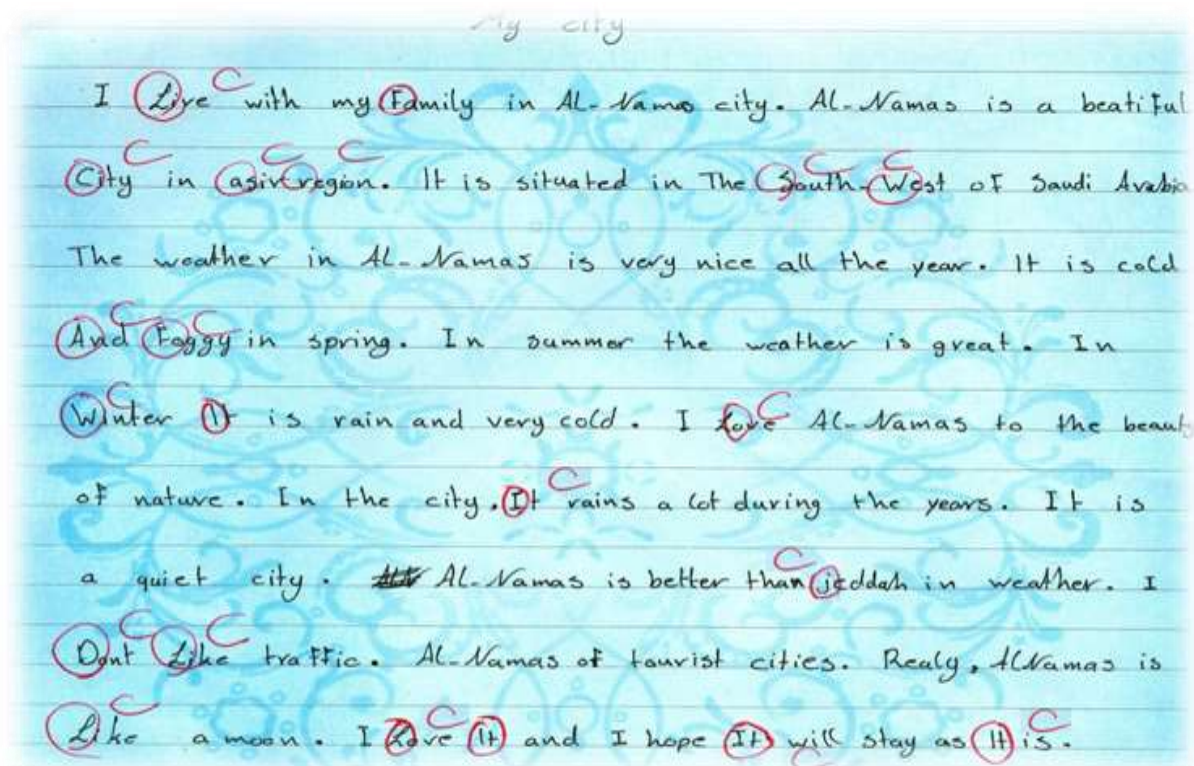 My city
I Live with my Family in AL-Namas city. AL-Namas is a beatiful
City in asir region. It is situated in The South-West of Saudi Arabia
The weather in AL-Namas is very nice all the year. It is cold
And Foggy in spring. In summer the weather is great. In
Winter It is rain and very cold. I Love AL-Namas to the beauty
of nature. In the city. It rains a lot during the years. It is
a quiet city. AL-Namas is better than jeddah in weather. I
Dont Like traffic. AL-Namas of tourist cities. Realy, ALNamas is
Like a moon. I Love It and I hope It will stay as It is.